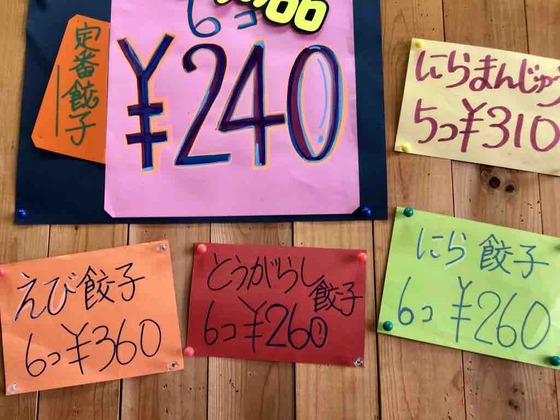 定番餃子
6コ
¥240
にらまんじゅう
5コ¥310
えび餃子
6コ¥360
とうがらし
餃子
6コ¥260
にら餃子
6コ¥260